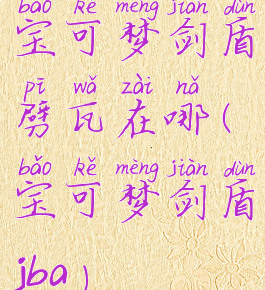 bǎo kě mèng jiàn dùn
宝可梦剑盾
pī wǎ zài nǎ
劈瓦在哪(
bǎo kě mèng jiàn dùn
宝可梦剑盾
jba)